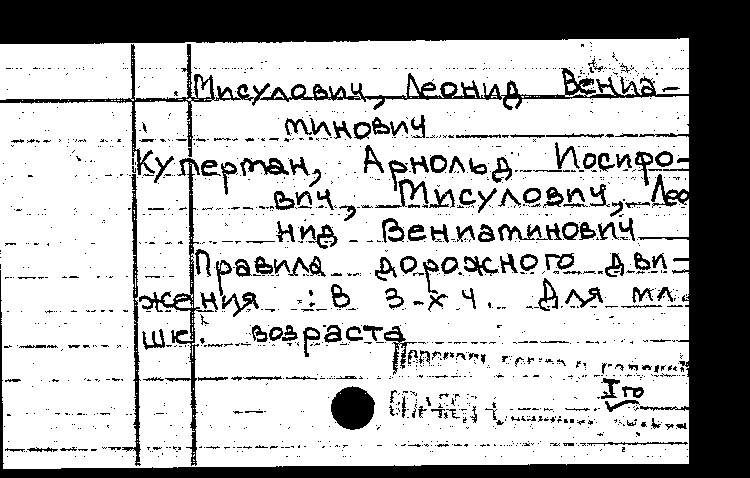 Мисулович, Леонид Вениа-
минович
Куперман, Арнольд Иосифо-
вич, Мисулович, Лео
нид Вениаминович
Правила дорожного дви-
жения : В 3-х ч. Для мл.
шк. возраста
I го